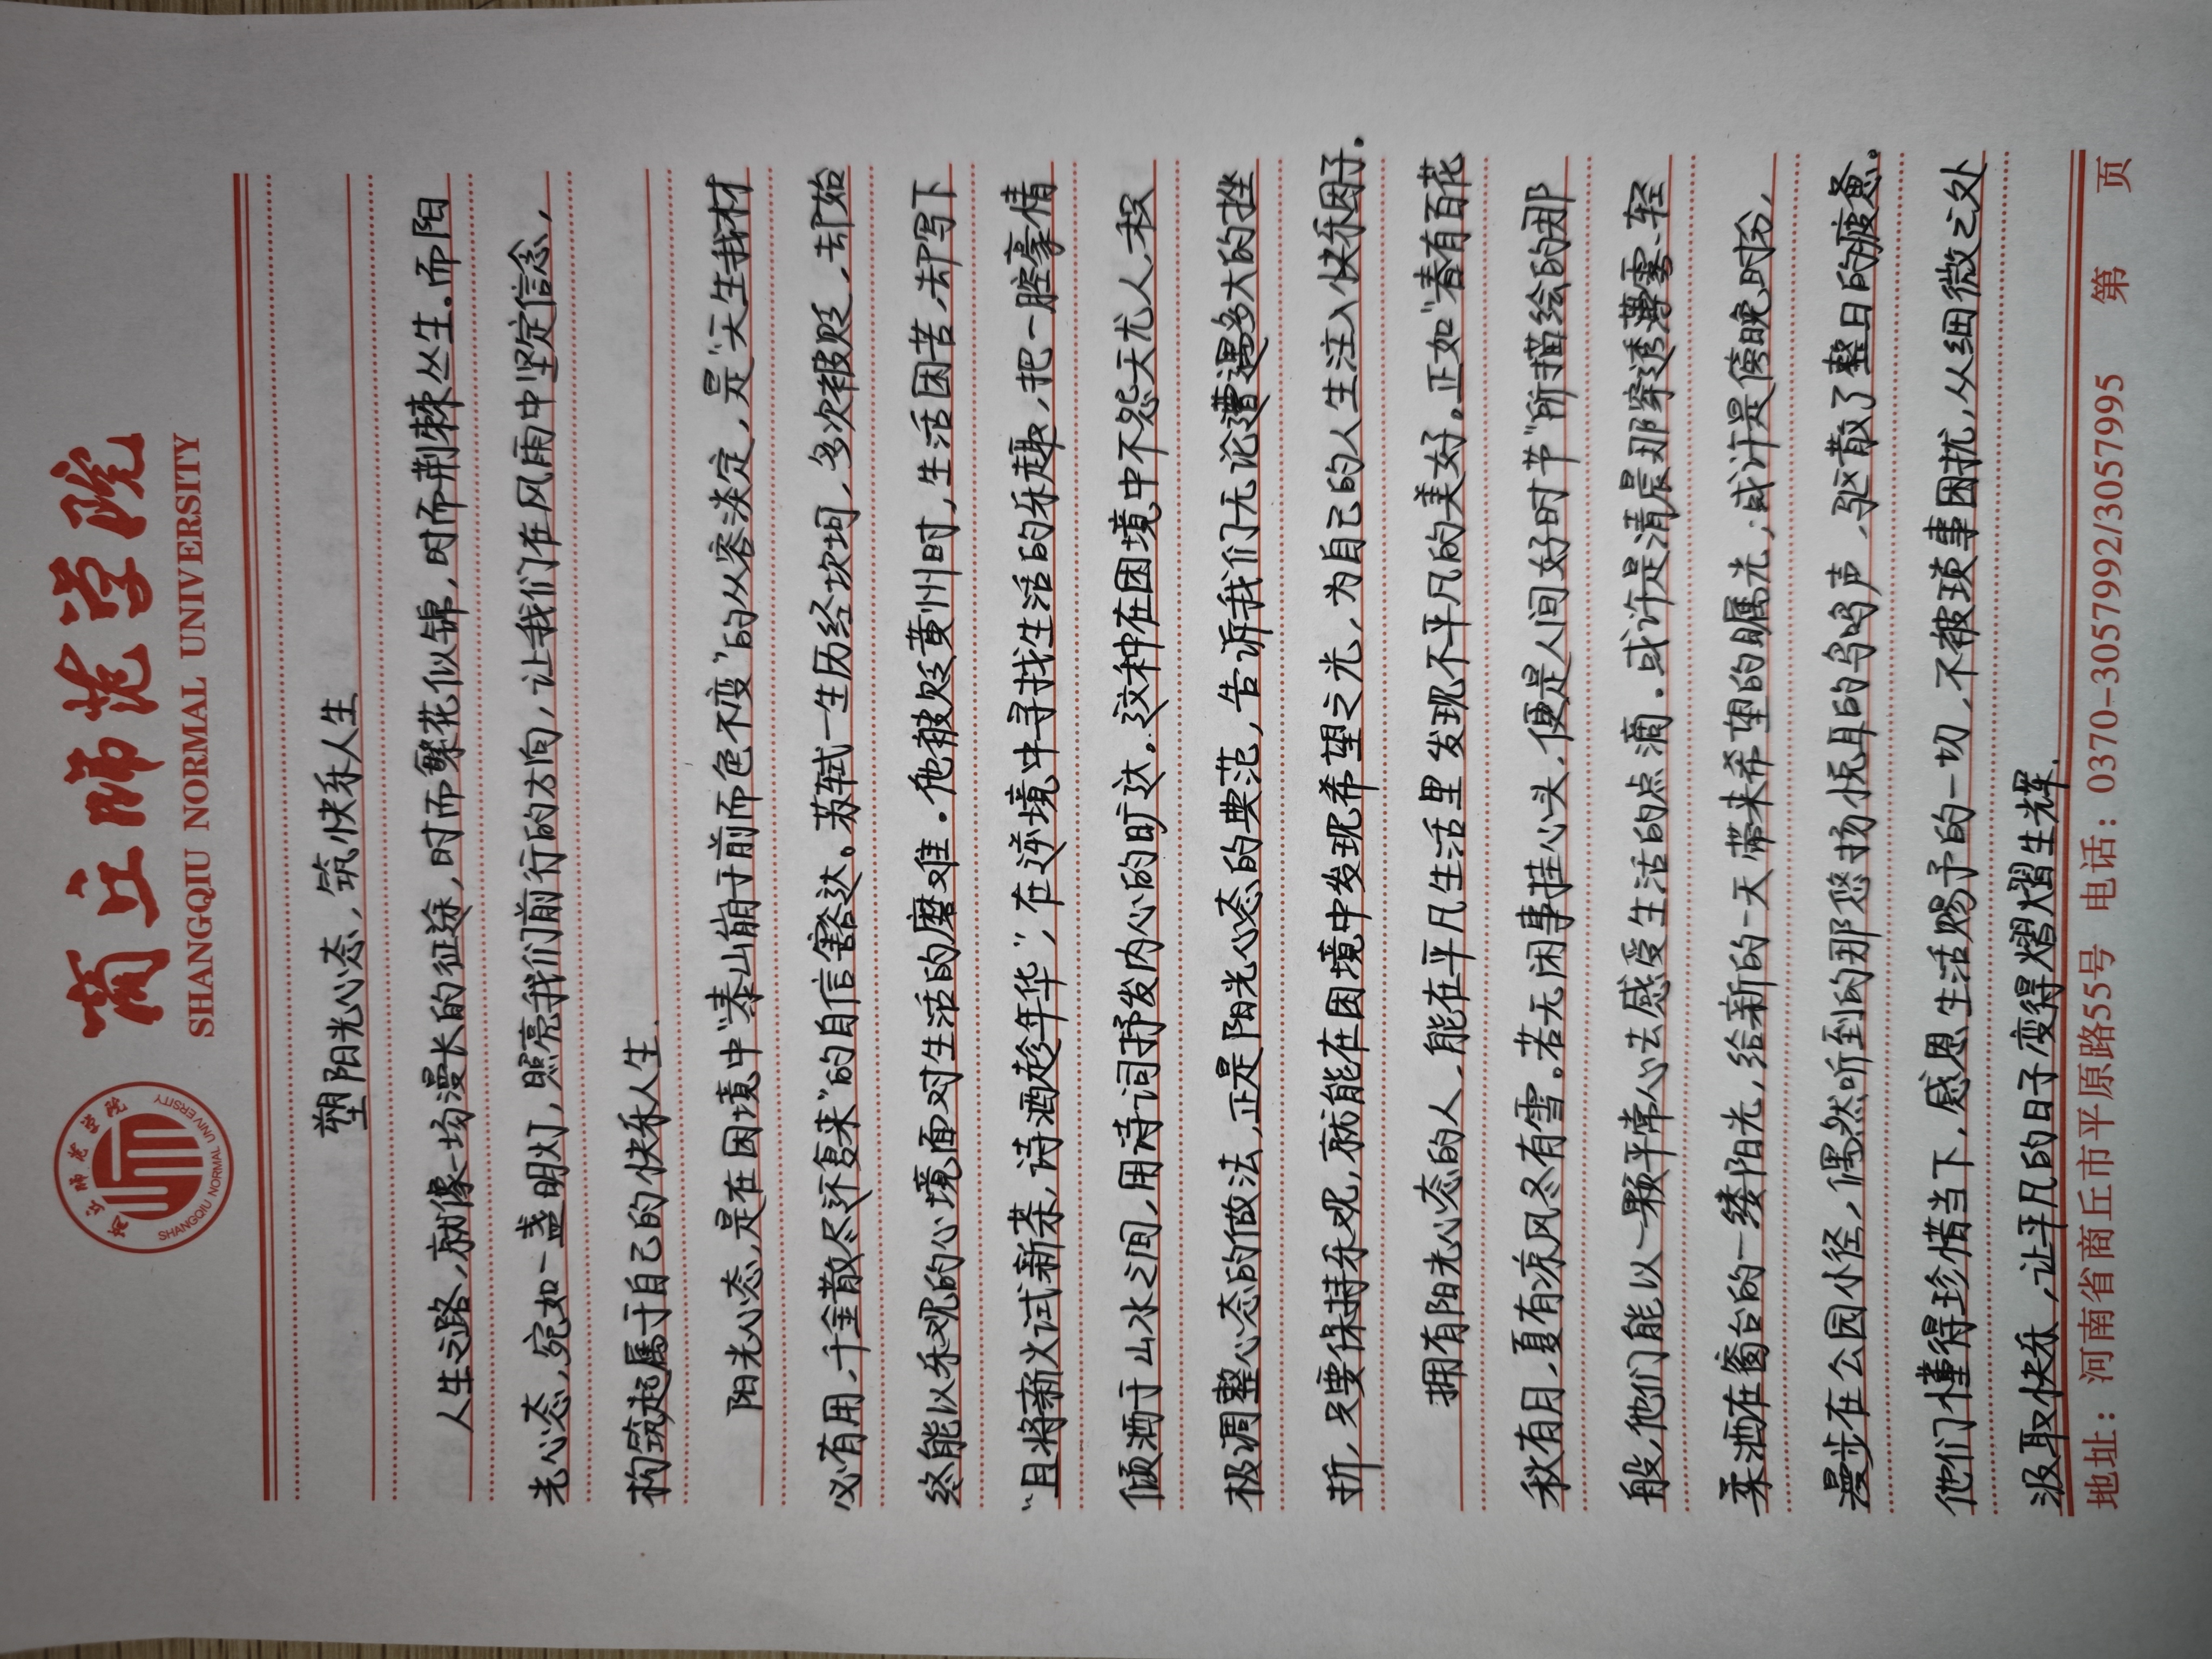 商丘师范学院
SHANGQIU NORMAL UNIVERSITY
商丘师范学院
SHANGQIU NORMAL UNIVERSITY
塑阳光心态，筑快乐人生
人生之路，就像一场漫长的征途，时而繁花似锦，时而荆棘丛生。而阳
光心态，宛如一盏明灯，照亮我们前行的方向，让我们在风雨中坚定信念，
构筑起属于自己的快乐人生.
阳光心态，是在困境中“泰山崩于前而色不变”的从容淡定，是“天生我材
必有用，千金散尽还复来”的自信豁达。苏轼一生历经坎坷，多次被贬，却始
终能以乐观的心境面对生活的磨难。他被贬黄州时，生活困苦，却写下
“且将新火试新茶，诗酒趁年华”，在逆境中寻找生活的乐趣，把一腔豪情
倾洒于山水之间，用诗词抒发内心的旷达。这种在困境中不怨天尤人，积
极调整心态的做法，正是阳光心态的典范，告诉我们无论遭遇多大的挫
折，只要保持乐观，就能在困境中发现希望之光，为自己的人生注入快乐因子.
拥有阳光心态的人，能在平凡生活里发现不平凡的美好。正如“春有百花
秋有月，夏有凉风冬有雪。若无闲事挂心头，便是人间好时节”所描绘的那
般，他们能以一颗平常心去感受生活的点滴. 或许是清晨那穿透薄雾、轻
柔洒在窗台的一缕阳光，给新的一天带来希望的曙光；或许是傍晚时分，
漫步在公园小径，偶然听到的那悠扬悦耳的鸟鸣声，驱散了整日的疲惫。
他们懂得珍惜当下，感恩生活赐予的一切，不被琐事困扰，从细微之处
汲取快乐，让平凡的日子变得熠熠生辉.
地址：河南省商丘市平原路55号 电话：0370-3057992/3057995 第 页